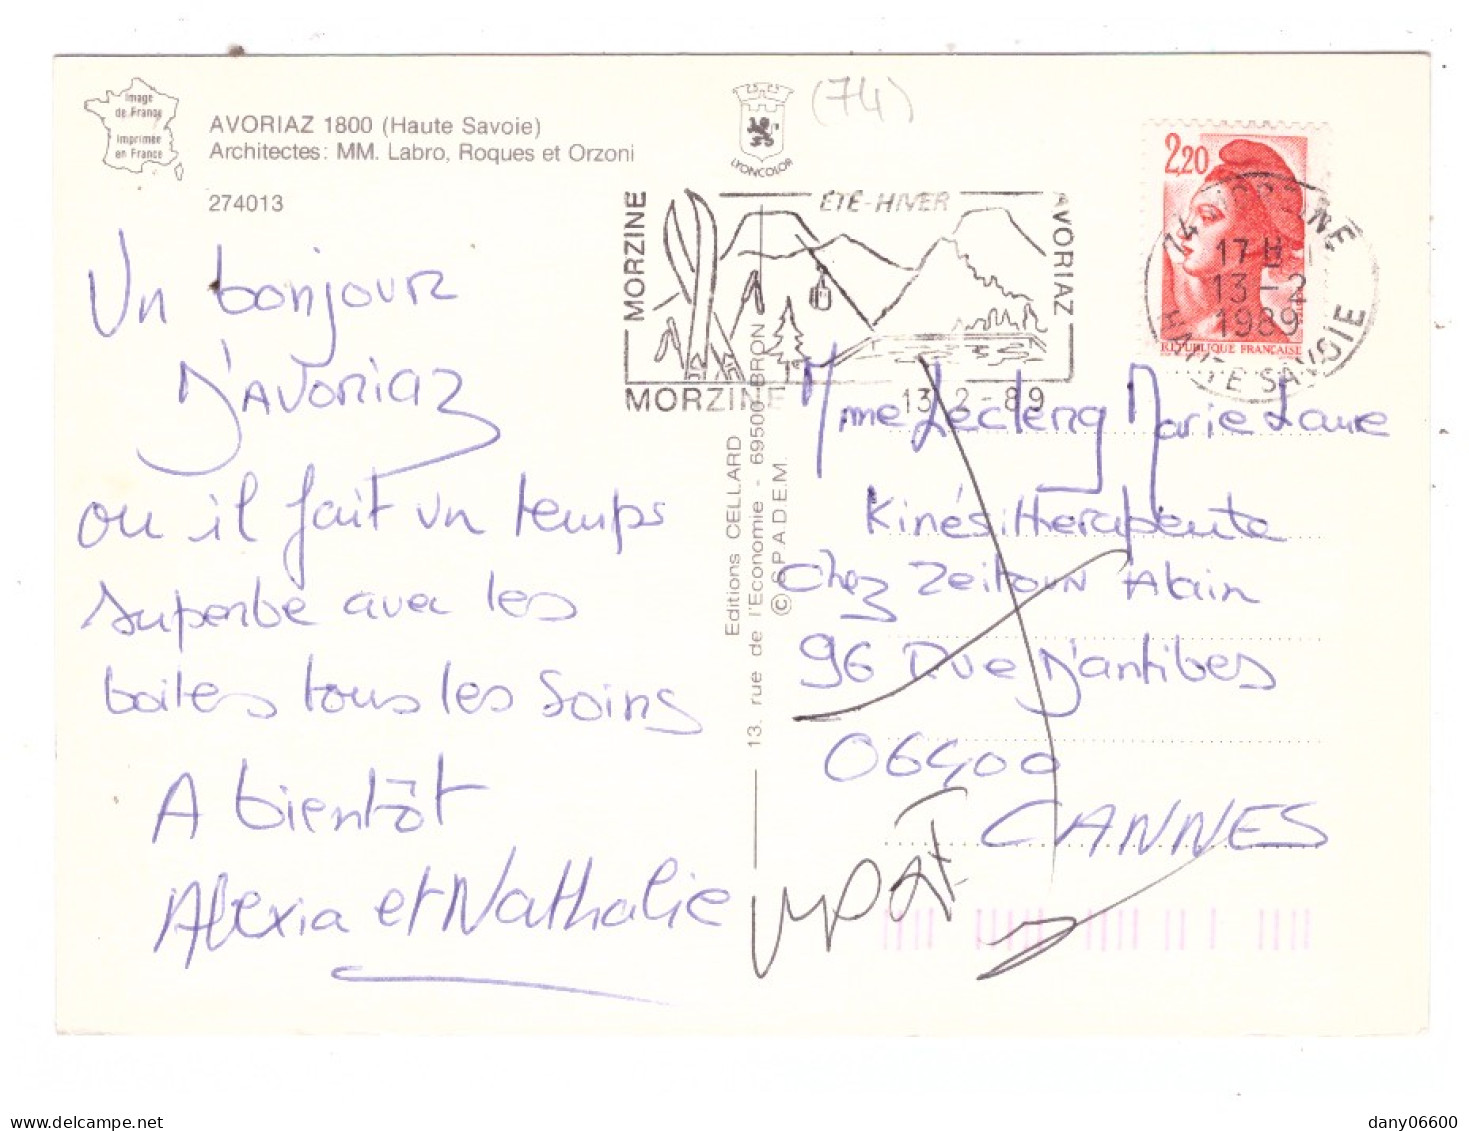 Image
de France
Imprimée
en France
AVORIAZ 1800 (Haute Savoie)
Architectes: MM. Labro, Roques et Orzoni
274013
LYONCOLOR
(74)
2,20
REPUBLIQUE FRANÇAISE
74
17H
13-2
1989
HAUTE SAVOIE
ÉTÉ-HIVER
MORZINE
AVORIAZ
MORZINE
13-2-89
Un bonjour
D'AVORiaz
ou il fait un temps
superbe avec les
boites tous les Soirs
A bientôt
Alexia et Nathalie
Editions CELLARD
13, rue de l'Economie - 69500 BRON
© S.P.A.D.E.M.
Mme Leclerq Marie Laure
Kinésitherapeute
chez Zeitoun Alain
96 Rue D'antibes
06400
CANNES
dany06600